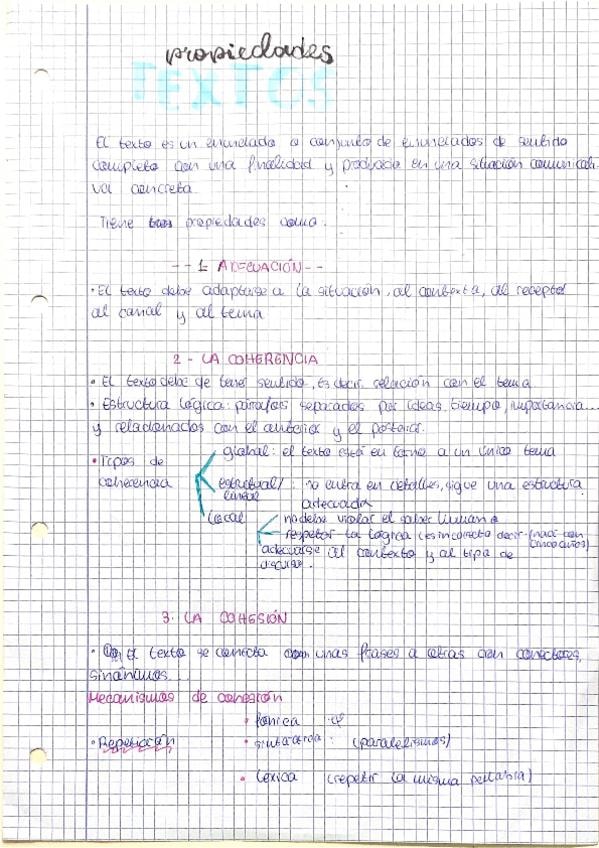 propiedades
TEXTOS
El texto es un enunciado o conjunto de enunciados de sentido
completo con una finalidad y producida en una situación comunicati
va concreta.
Tiene tres propiedades como:
-- 1. ADECUACIÓN--
• El texto debe adaptarse a la situación, al contexto, al receptor
al canal y al tema
2 - LA COHERENCIA
• El texto debe de tener sentido, es decir, relación con el tema
• Estructura lógica: párrafos separados por ideas, tiempo, importancia...
y relacionados con el anterior y el posterior.
• Tipos de coherencia
global: el texto está en torno a un único tema
estructural/lineal: no entra en detalles, sigue una estructura
adecuada
local
no debe violar el saber humano
respetar la lógica (es incorrecto decir: (nací con cinco años)
adecuarse al contexto y al tipo de
discurso.
3. LA COHESIÓN
• El texto se conecta con unas frases a otras con conectores,
sinónimos...
Mecanismos de cohesión
• Repetición
• fónica
• sintáctica: (paralelismos)
• léxica (repetir la misma palabra)